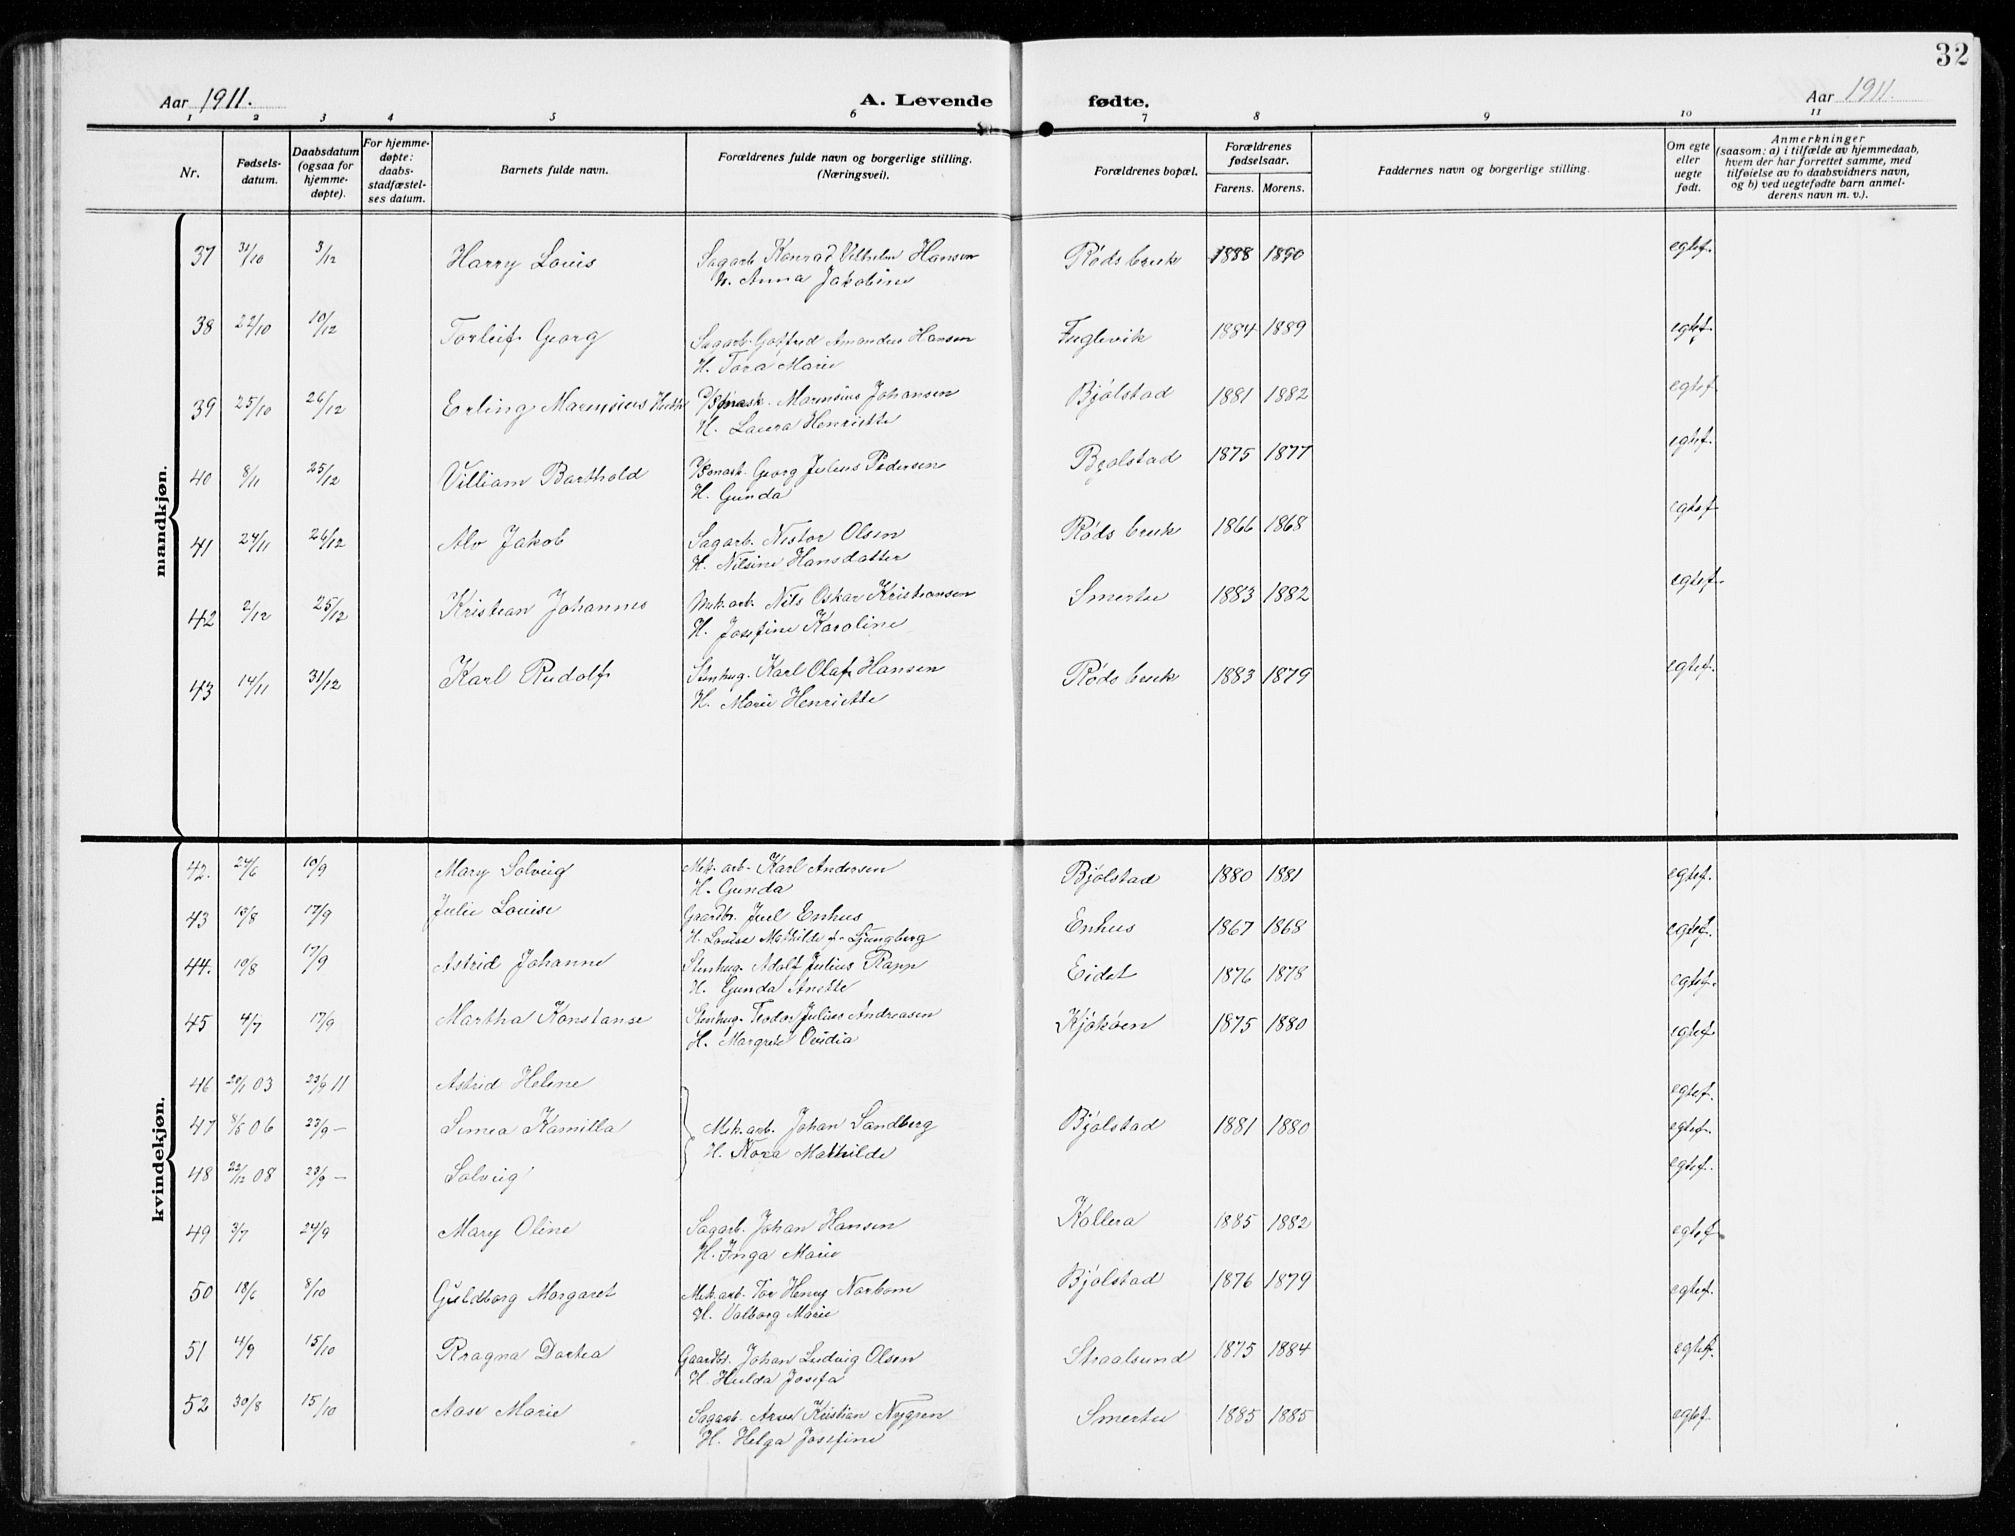 32
Aar 1911. A. Levende fødte. Aar 1911.
1 2 3 4 5 6 7 8 9 10 11
Nr. Fødsels-datum. Daabsdatum (ogsaa for hjemme-døpte). For hjemme-døpte: daabs-stadfæstel-ses datum. Barnets fulde navn. Forældrenes fulde navn og borgerlige stilling. (Næringsvei). Forældrenes bopæl. Forældrenes fødselsaar. Farens. Morens. Faddernes navn og borgerlige stilling. Om egte eller uegte født. Anmerkninger (saasom: a) i tilfælde av hjemmedaab, hvem der har forrettet samme, med tilføielse av to daabsvidners navn, og b) ved uegtefødte barn anmel-derens navn m. v.).
mandkjøn.
37 31/10 3/12 Harry Louis Sagarb. Konrad Vilhelm Hansen Røds bruk 1888 1890 egtef.
H. Anna Jakobine
38 22/10 10/12 Torleif Georg Sagarb. Gotfred Amandus Hansen Fuglevik 1884 1889 egtef.
H. Tora Marie
39 25/10 26/12 Erling Marensius Marensius Johansen Bjølstad 1881 1882 egtef.
H. Laura Henriette
40 8/11 25/12 Villiam Barthold Georg Julius Pedersen Bjølstad 1875 1877 egtef.
H. Gunda
41 24/11 26/12 Alv Jakob Sagarb. Nestor Olsen Røds bruk 1866 1868 egtef.
H. Nilsine Hansdatter
42 2/12 25/12 Kristian Johannes Mek.arb. Nils Oskar Kristiansen Smertu 1883 1882 egtef.
H. Josefine Karoline
43 14/11 31/12 Karl Rudolf Stenhug. Karl Olaf Hansen Røds bruk 1883 1879 egtef.
H. Marie Henriette
kvindekjøn.
42. 24/6 10/9 Mary Solveig Mek. arb. Karl Andersen Bjølstad 1880 1881 egtef.
H. Gunda
43 13/8 17/9 Julie Louise Gaardbr. Juel Enhus Enhus 1867 1868 egtef.
H. Louise Mathilde f. Ljungberg
44. 10/8 17/9 Astrid Johanne Stenhug. Adolf Julius Rapp Eidet 1876 1878 egtef.
H. Gunda Anette
45 4/7 17/9 Martha Konstanse Stenhug. Teodor Julius Andreasen Kjøkøen 1875 1880 egtef.
H. Margrete Ovidia
46 20/1 03 23/9 11 Astrid Helene egtef.
47 8/5 06 23/9 - Simea Kamilla Mek.arb. Johan Sandberg Bjølstad 1881 1880 egtef.
H. Nora Mathilde
48 22/12 08 23/9 - Solveig egtef.
49 3/7 24/9 Mary Oline Sagarb. Johan Hansen Kallera 1885 1882 egtef.
H. Inga Marie
50 18/6 8/10 Guldborg Margaret Mek.arb. Tor Henry Norbom Bjølstad 1876 1879 egtef.
H. Valborg Marie
51 4/9 15/10 Ragna Dortea Gaardb. Johan Ludvig Olsen Straalsund 1875 1884 egtef.
H. Hulda Josefa
52 30/8 15/10 Aase Marie Sagarb. Kristian Nygren Smertu 1885 1885 egtef.
H. Helga Josefine